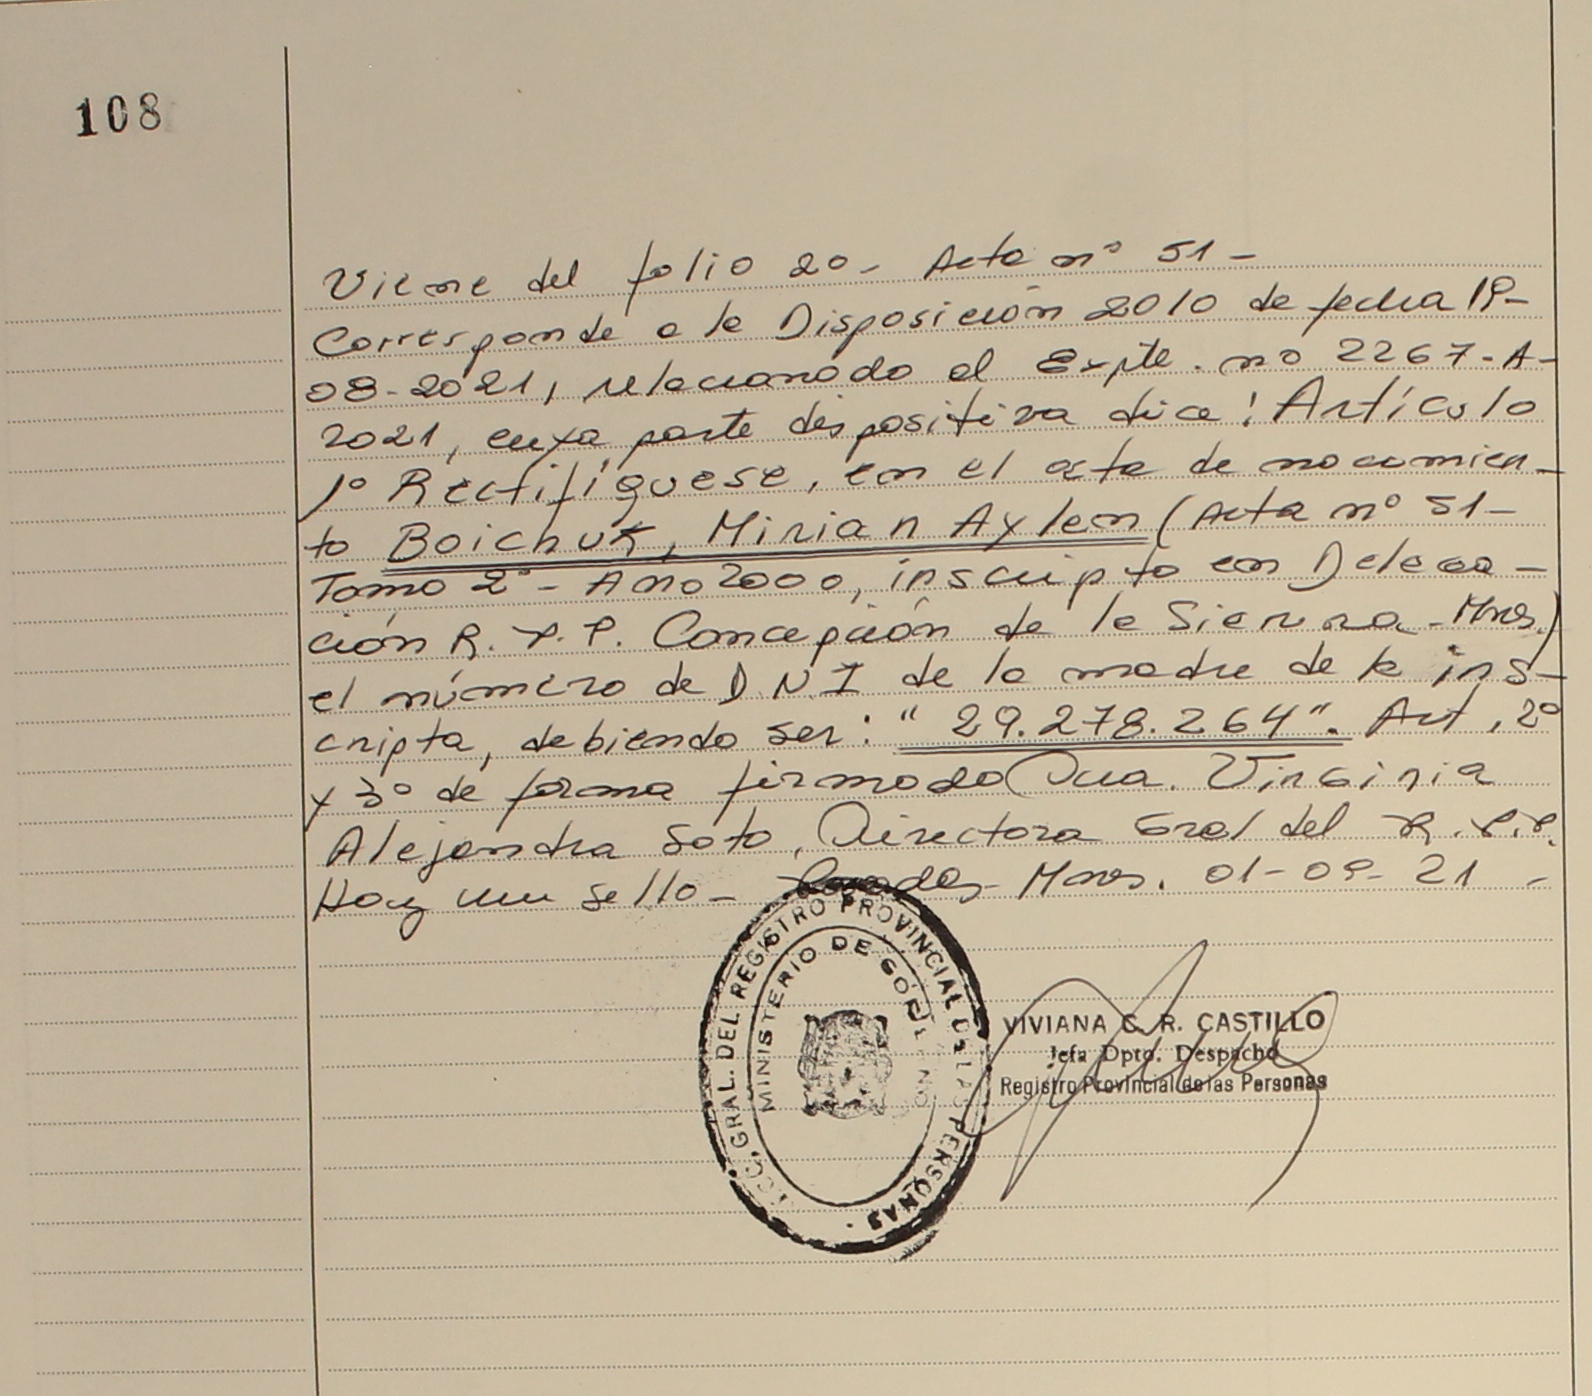 108
Viene del folio 20- Acta nº 51-
Corresponde a la Disposición 2010 de fecha 19-
08-2021, relacionado al Expte. nº 2267-A-
2021, cuya parte dispositiva dice: Artículo
1º Rectifíquese, en el acta de nacimien-
to Boichuk, Mirian Aylen (Acta nº 51-
Tomo 2º- Año 2000, inscripto en Delega-
ción R.P.P. Concepción de la Sierra-Mnes)
el número de DNI de la madre de la ins-
cripta, debiendo ser: "29.278.264". Art. 2º
y 3º de forma firmado Dra. Virginia
Alejandra Soto, Directora Gral del R.P.P.
Hay un sello- Posadas- Mnes. 01-09-21-
GRAL. DEL REGISTRO PROVINCIAL DE LAS PERSONAS
MINISTERIO DE GOBIERNO
VIVIANA C. R. CASTILLO
Jefa Dpto. Despacho
Registro Provincial de las Personas